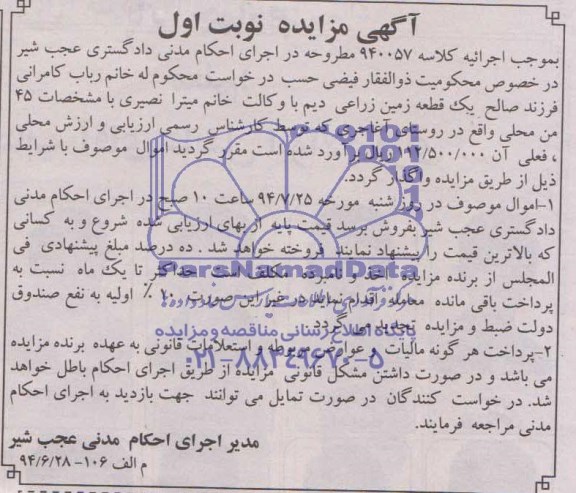 آگهی مزایده نوبت اول
بموجب اجرائیه کلاسه ۹۴۰۰۵۷ مطروحه در اجرای احکام مدنی دادگستری عجب شیر
در خصوص محکومیت ذوالفقار فیضی حسب در خواست محکوم له خانم رباب کامرانی
فرزند صالح یک قطعه زمین زراعی دیم با وکالت خانم میترا نصیری با مشخصات ۴۵
من محلی واقع در روستای آغاجری که توسط کارشناس رسمی ارزیابی و ارزش محلی
، فعلی آن ۱۹۲/۵۰۰/۰۰۰ ریال برآورد شده است مقرر گردید اموال موصوف با شرایط
ذیل از طریق مزایده واگذار گردد.
۱-اموال موصوف در روز شنبه مورخه ۹۴/۷/۲۵ ساعت ۱۰ صبح در اجرای احکام مدنی
دادگستری عجب شیر بفروش برسد قیمت پایه از بهای ارزیابی شده شروع و به کسانی
که بالاترین قیمت را پیشنهاد نمایند فروخته خواهد شد . ده درصد مبلغ پیشنهادی فی
المجلس از برنده مزایده اخذ و نامبرده مکلف است حداکثر تا یک ماه نسبت به
پرداخت باقی مانده معامله اقدام نماید در غیر این صورت ۱۰٪ اولیه به نفع صندوق
دولت ضبط و مزایده تجدید می گردد.
۲-پرداخت هر گونه مالیات و عوارض مربوطه و استعلامات قانونی به عهده برنده مزایده
می باشد و در صورت داشتن مشکل قانونی مزایده از طریق اجرای احکام باطل خواهد
شد. در خواست کنندگان در صورت تمایل می توانند جهت بازدید به اجرای احکام
مدنی مراجعه فرمایند.
مدیر اجرای احکام مدنی عجب شیر
م الف ۱۰۶-۹۴/۶/۲۸
ParsNamadData
پایگاه اطلاع رسانی مناقصه و مزایده
۰۲۱-۸۸۳۴۹۶۷۰-۵